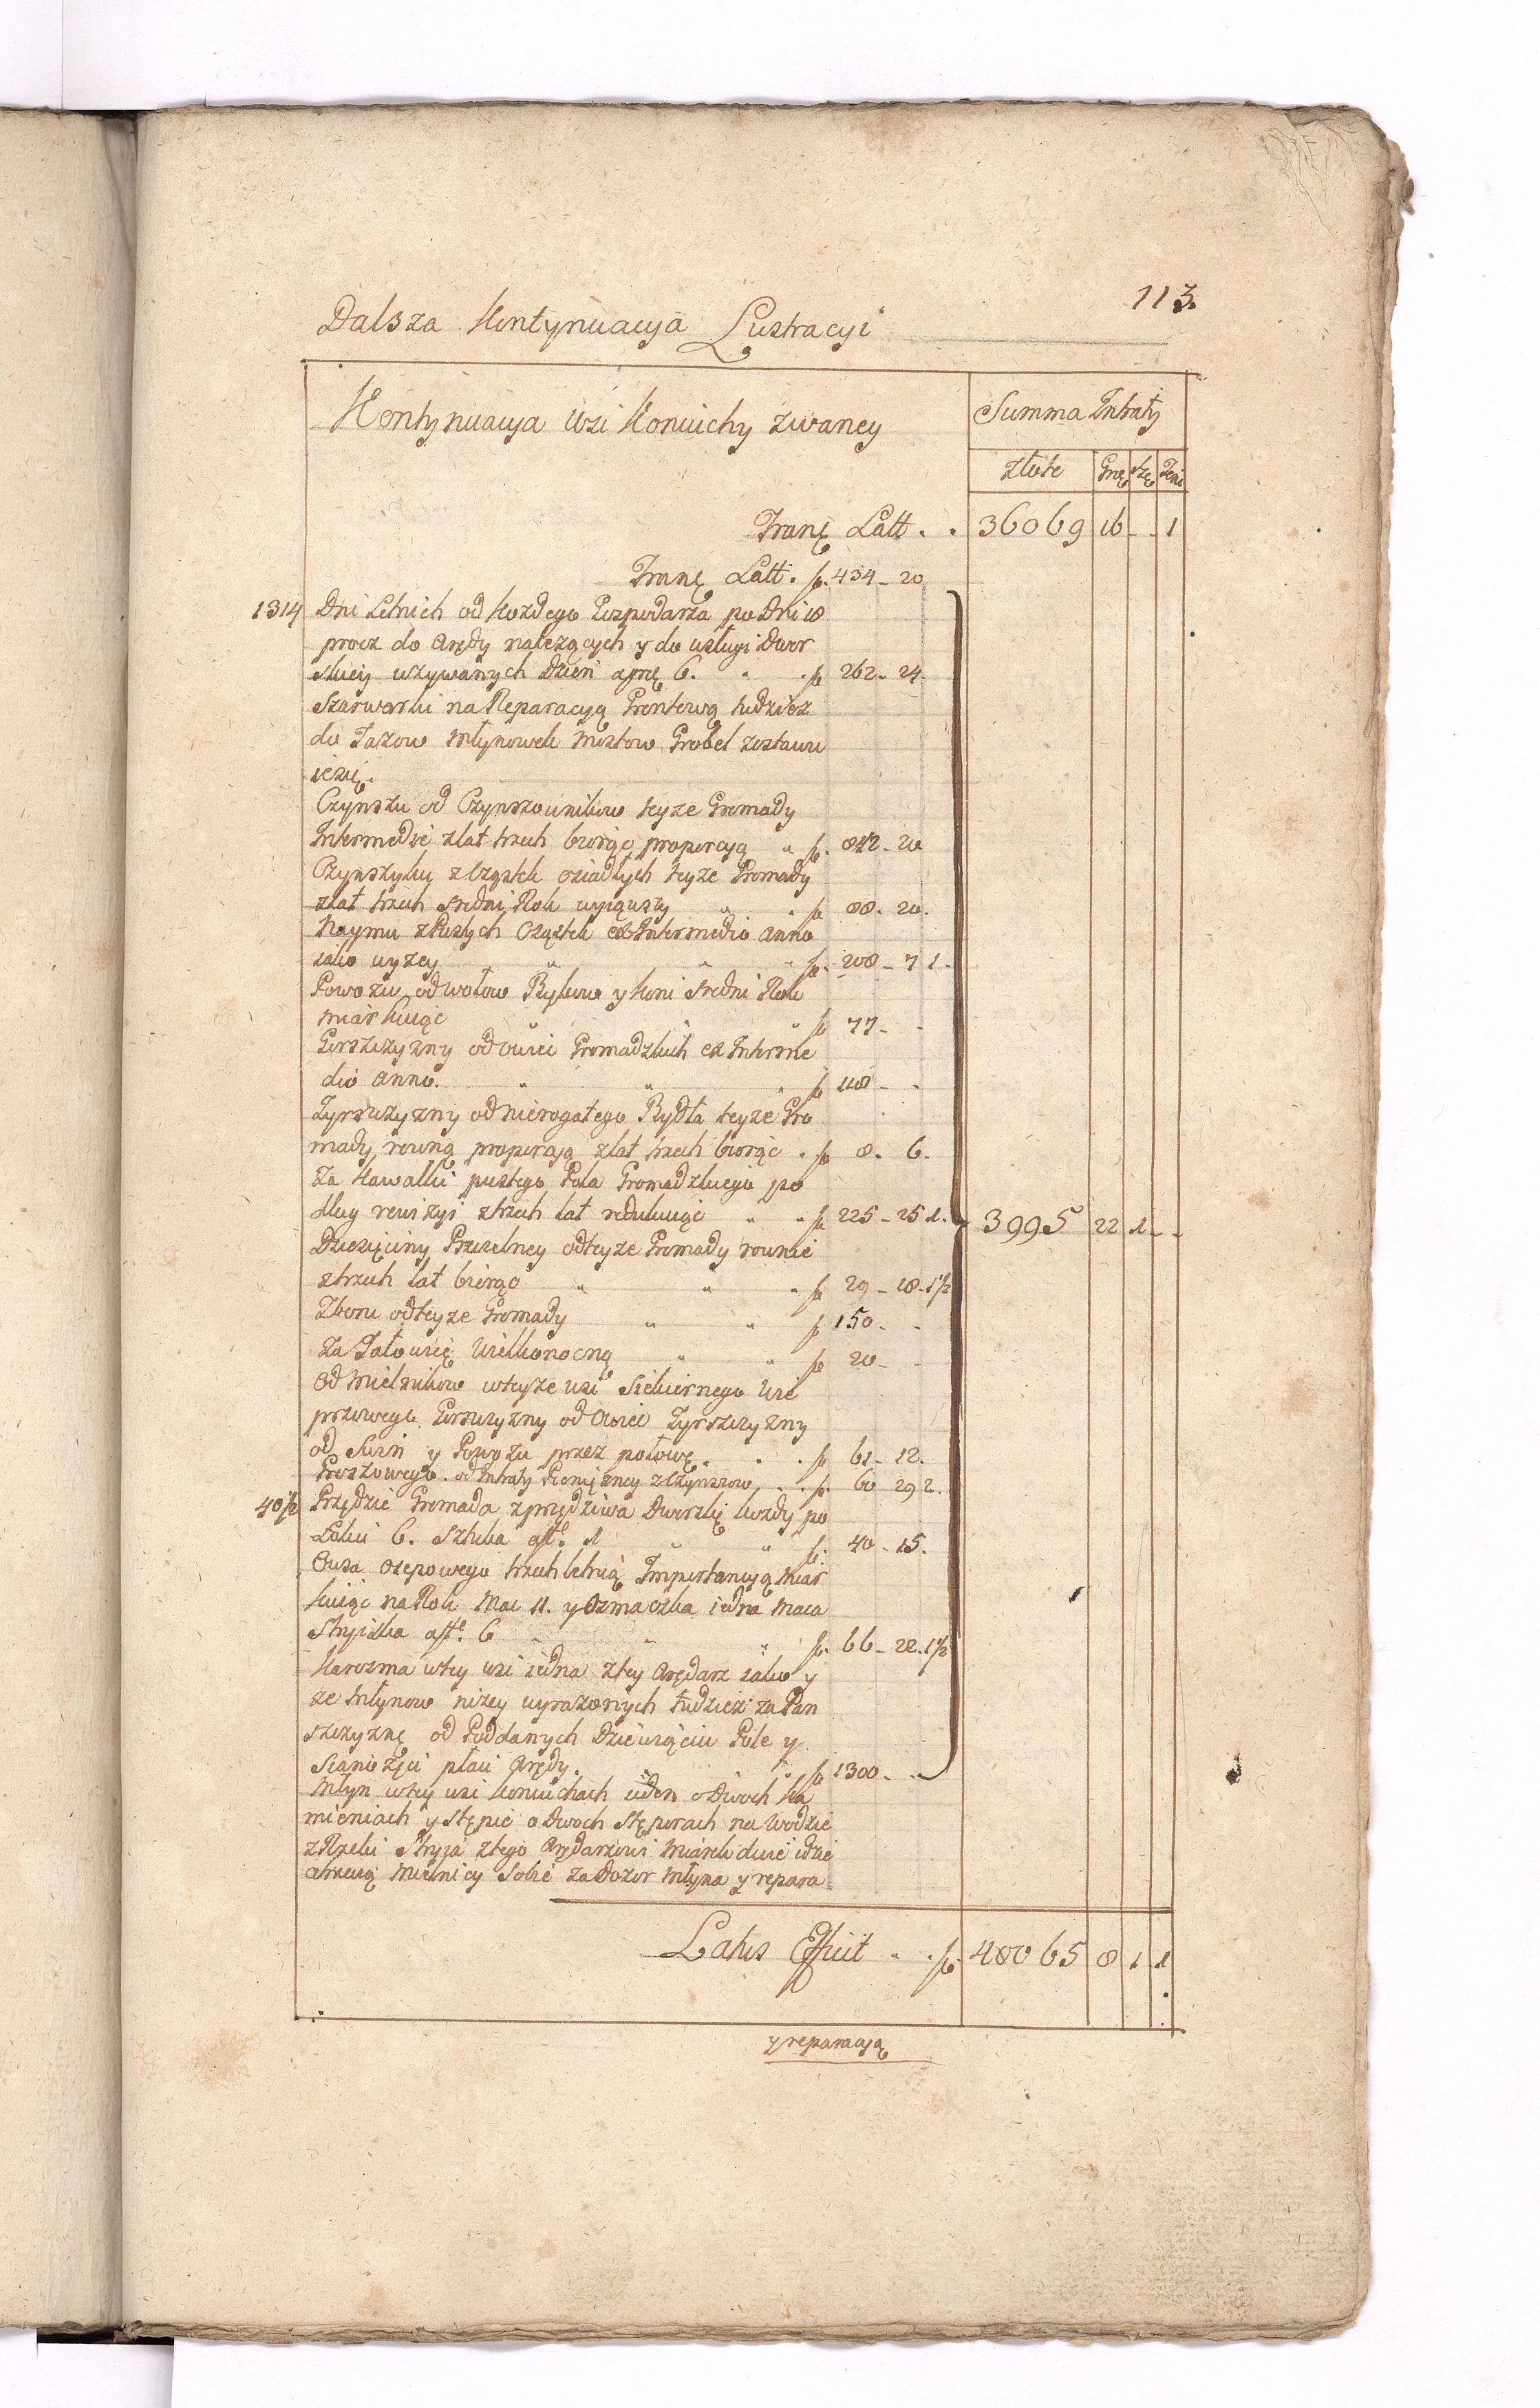 113.
Dalsza Kontynuacya Lustracyi
Kontynuacya Wsi Koniuchy zwaney
Summa Intraty
złote Gro Sze Peni
Trans Latt . . 36069 16 - - 1
Trans Latt . f. 434 - 20
1314 Dni Letnich od każdego Gospodarza po Dni 18
procz do Arędy należących y do usługi Dwor
skiey używanych Dzień a grę 6. " . f 262 - 24.
Szarwarki na Reparacyą Gruntową tudziesz
do Jazow Młynowek Mostow Grobel zostawu
ie się.
Czynszu od Czynszownikow teyże Gromady
Intermedie z lat trzech biorąc proporcyą " f. 842 - 20
Czynszyku z Cząstek osiadłych teyże Gromady
z lat trzech średni Rok wyiąwszy " . f 88. 20.
Naymu z Pustych Cząstek ex Intermedio anno
iako wyżey " " " f. 208 - 7 1.
Powozu od wołow Bykow y koni średni Rok
miarkuiąc " " " f 77 - -
Gorszczyzny od owiec Gromadzkich ex Interme
dio anno. " " . f 118 - -
Żyrszczyzny od nierogatego Bydła teyże Gro
mady, rowną proporcyą z lat trzech biorąc . f 8. 6.
Za Kawałki pustego Pola Gromadzkiego po
dług rewizyi z trzech lat redukuiąc " " f 225 - 25 1. 3995 22 1 - -
Dziesięciny Pszczelney od teyże Gromady rownie
z trzech lat biorąc " " " f 29 - 18 - 1½
Zboru od teyże Gromady " " f 150 - -
Za Jałowicę Wielkonocną " " f 20 - -
Od Mielnikow w teyże wsi Siekiernego Wie
przowego Gorszczyzny od Owiec Żyrszczyzny
od Świń y Powozu przez połowę. . . f 61 - 12.
Groszowego od Intraty Pieniężney z Czynszow . . f. 60 29 2.
40½ Przędzie Gromada z przędziwa Dworskię każdy po
Łokci 6. Sztuka aff. 1 " " f. 40 - 15.
Owsa Osepowego trzech letnią Importancyą miar
kuiąc na Rok Mac 11. y Osmaczka iedna Maca
Stryiska aff. 6 " " " f. 66 - 22 - 1½
Karczma w tey wsi iedna z tey Arędarz iako y
ze Młynow niżey wyrażonych tudziesz za Pan
szczyznę od Poddanych Dziewięciu Pole y
Sianożęci płaci Arędy. " " f 1300 - -
Młyn w tey wsi Koniuchach ieden o Dwoch Ka
mieniach y Stępie o Dwoch Stęporach na Wodzie
z Rzeki Stryja z tego Arędarzowi Miarek dwie idzie
a trzecią Mielnicy Sobie za Dozor Młyna y repara
Latus Efficit " . f. 40065 8 1 1
y reparacyą